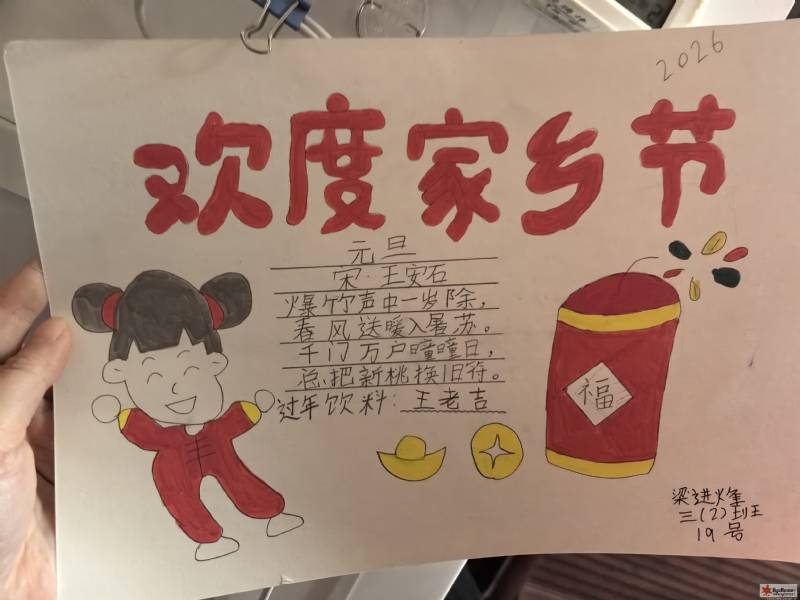 2026
欢度家乡节
元旦
宋·王安石
爆竹声中一岁除，
春风送暖入暑苏。
千门万户曈曈日，
总把新桃换旧符。
过年饮料：王老吉
福
梁进烽
三(2)班
19号